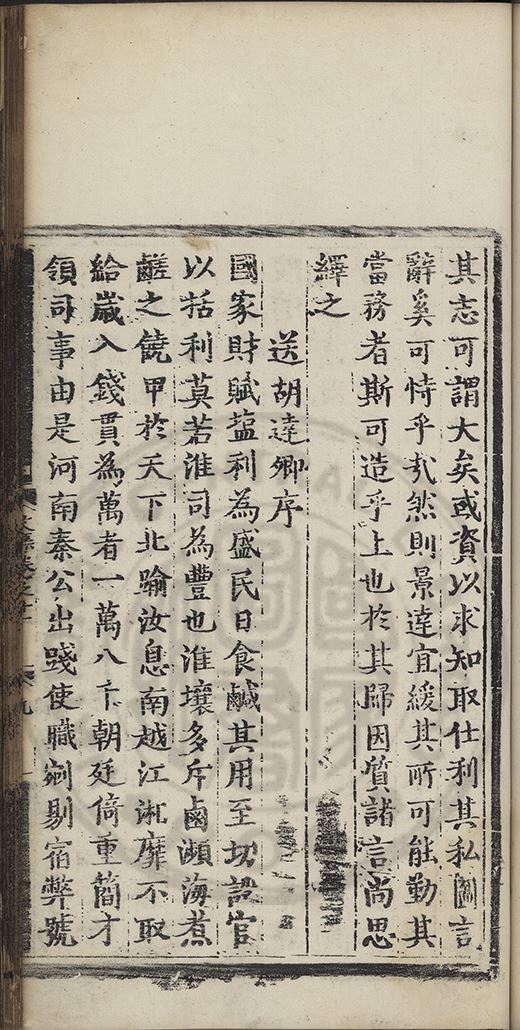 其志可謂大矣或資以求知取仕利其私圖言
辭奚可恃乎哉然則景達宜緩其所可能勤其
當務者斯可造乎上也於其歸因質諸言尚思
繹之
送胡達卿序
國家財賦塩利為盛民日食鹹其用至切設官
以括利莫若淮司為豐也淮壤多斥鹵瀕海煮
鹺之饒甲於天下北踰汝息南越江湘靡不取
給歲入錢貫為萬者一萬八千朝廷倚重簡才
領司事由是河南秦公出踐使職剜剔宿弊號